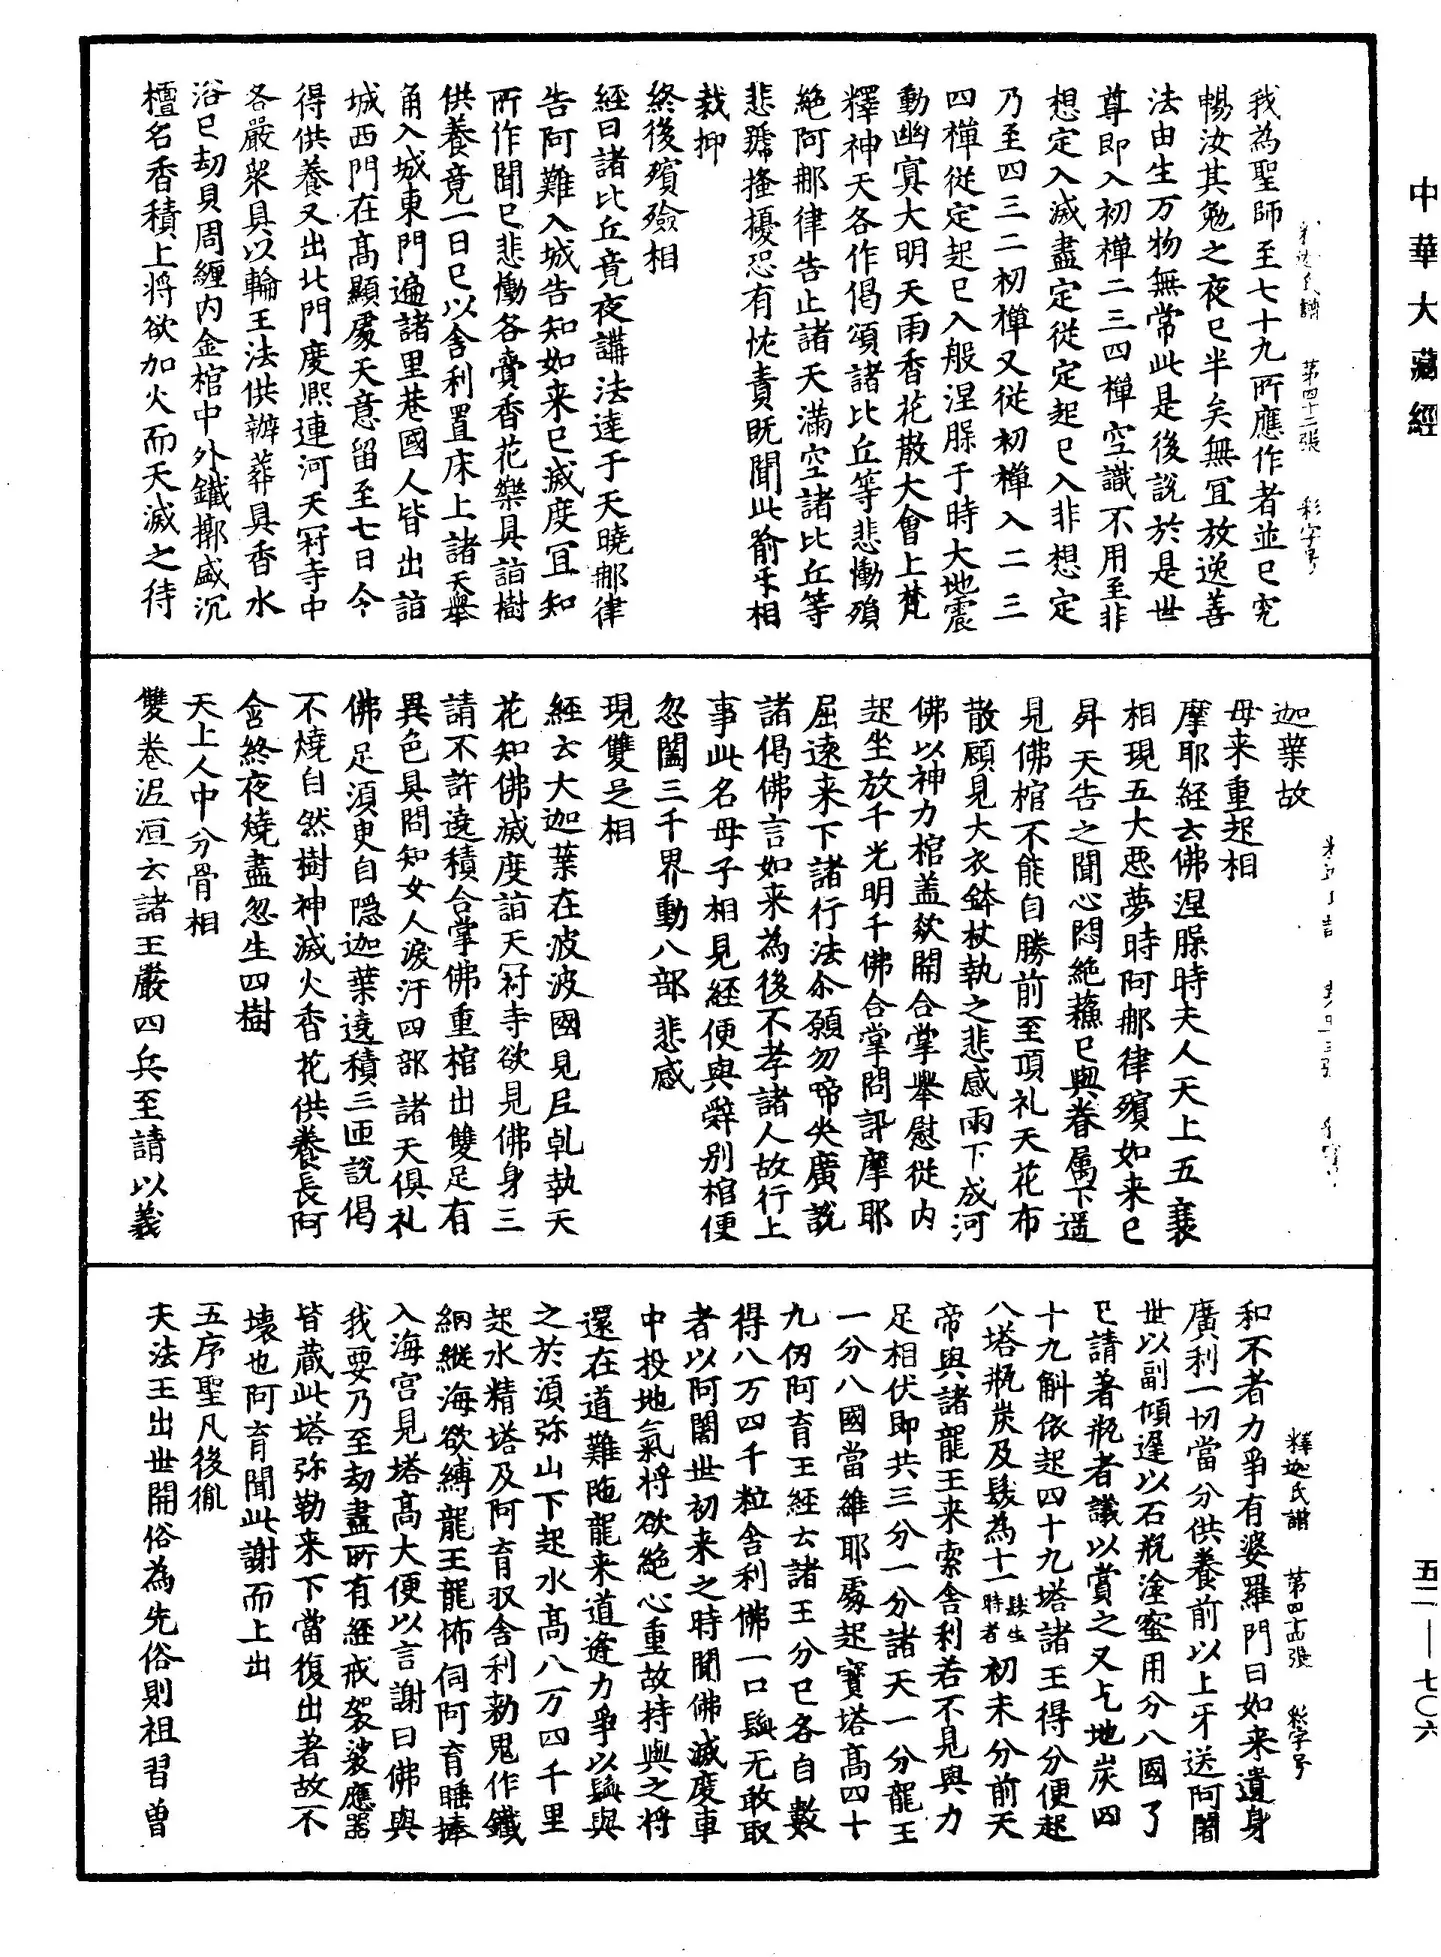 中華大藏經
釋迦氏譜 第四十二張 彩字号
我為聖師至七十九所應作者並已究
暢汝其勉之夜已半矣無冝放逸善
法由生万物無常此是後說於是世
尊即入初禅二三四禅空識不用至非
想定入滅盡定從定起已入非想定
乃至四三二初禅又從初禅入二三
四禅從定起已入般涅脲于時大地震
動幽㝠大明天雨香花散大會上梵
釋神天各作偈頌諸比丘等悲慟殞
絕阿那律告止諸天滿空諸比丘等
悲號搔擾恐有恠責既聞此喻手相
裁抑
終後殯殮相
經曰諸比丘竟夜講法達于天曉那律
告阿難入城告知如来已滅度冝知
所作聞已悲慟各賷香花樂具詣樹
供養竟一日已以舎利置床上諸天舉
角入城東門遍諸里巷國人皆出詣
城西門在髙顯處天意留至七日今
得供養又出北門度熈連河天冠寺中
各嚴衆具以輪王法供辦葬具香水
浴已劫貝周纏内金棺中外鐵槨盛沉
檀名香積上將欲加火而天滅之待
迦葉故
母来重起相
摩耶經云佛涅脲時夫人天上五衰
相現五大惡夢時阿那律殯如来已
昇天告之聞心悶絶蘓已與眷属下遥
見佛棺不能自勝前至頂礼天花布
散顧見大衣鉢杖執之悲感雨下成河
佛以神力棺盖欻開合掌舉慰從内
起坐放千光明千佛合掌問訊摩耶
屈遠来下諸行法尒願勿啼㘴廣說
諸偈佛言如来為後不孝諸人故行上
事此名母子相見經便與辤別棺便
忽闔三千界動八部悲感
現雙足相
經云大迦葉在波波國見尼乹執天
花知佛滅度詣天冠寺欲見佛身三
請不許遶積合掌佛重棺出雙足有
異色具問知女人淚汙四部諸天俱礼
佛足湏㬰自隠迦葉遶積三匝說偈
不燒自然樹神滅火香花供養長阿
含終夜燒盡忽生四樹
天上人中分骨相
雙卷泥洹云諸王嚴四兵至請以義
釋迦氏譜 第四十四張 彩字号
和不者力爭有婆羅門曰如来遺身
廣利一切當分供養前以上牙送阿闍
世以副傾遲以石瓶塗蜜用分八國了
已請著瓶者議以賞之又乞地炭四
十九斛依起四十九塔諸王得分便起
八塔瓶炭及髮為十一髮生時者初未分前天
帝與諸龍王来索舎利若不見與力
足相伏即共三分一分諸天一分龍王
一分八國當維耶處起寶塔髙四十
九仭阿育王經云諸王分已各自數
得八万四千粒舎利佛一口髭无敢取
者以阿闍世初来之時聞佛滅度車
中投地氣將欲絶心重故持與之将
還在道難陁龍来道逄力爭以髭與
之於湏弥山下起水髙八万四千里
起水精塔及阿育収舎利勑鬼作鐵
網縱海欲縛龍王龍怖伺阿育睡捧
入海宫見塔髙大便以言謝曰佛與
我要乃至劫盡所有經戒袈裟應器
皆蔵此塔弥勒来下當復出著故不
壊也阿育聞此謝而上出
五序聖凡後胤
夫法王出世開俗為先俗則祖習曾
五二—七〇六